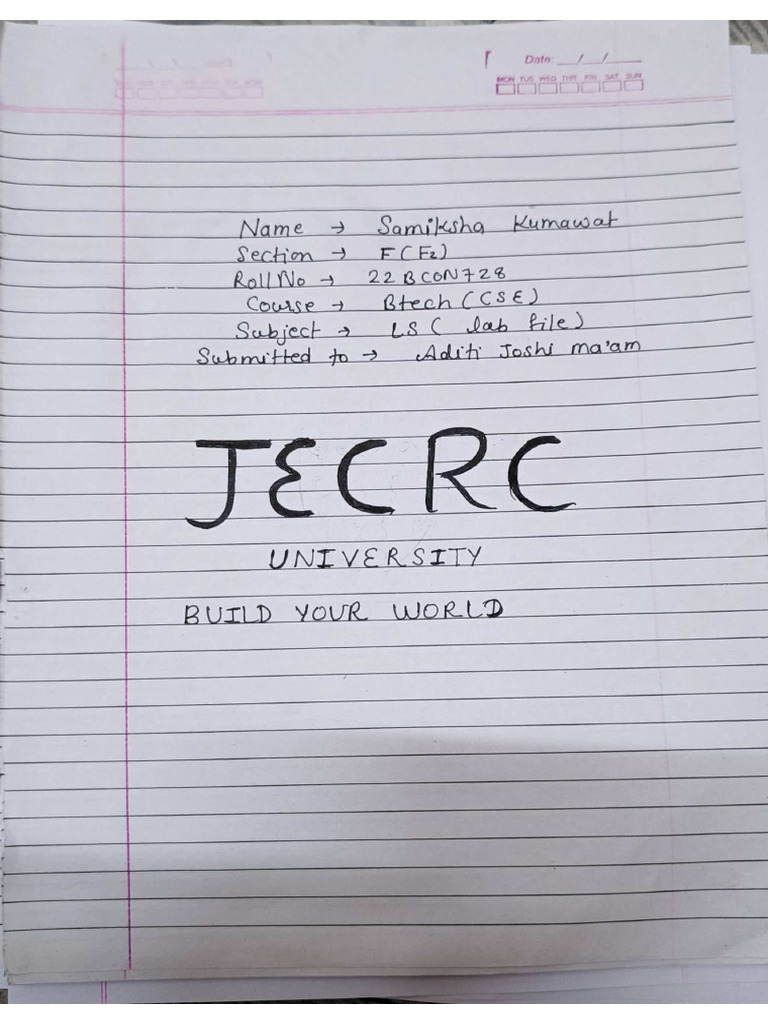 Date: __/__/____
MON TUE WED THR FRI SAT SUN
Name → Samiksha Kumawat
Section → F(F2)
Roll No → 22BCON728
Course → Btech (CSE)
Subject → LS( lab file)
Submitted to → Aditi Joshi ma'am
JECRC
UNIVERSITY
BUILD YOUR WORLD